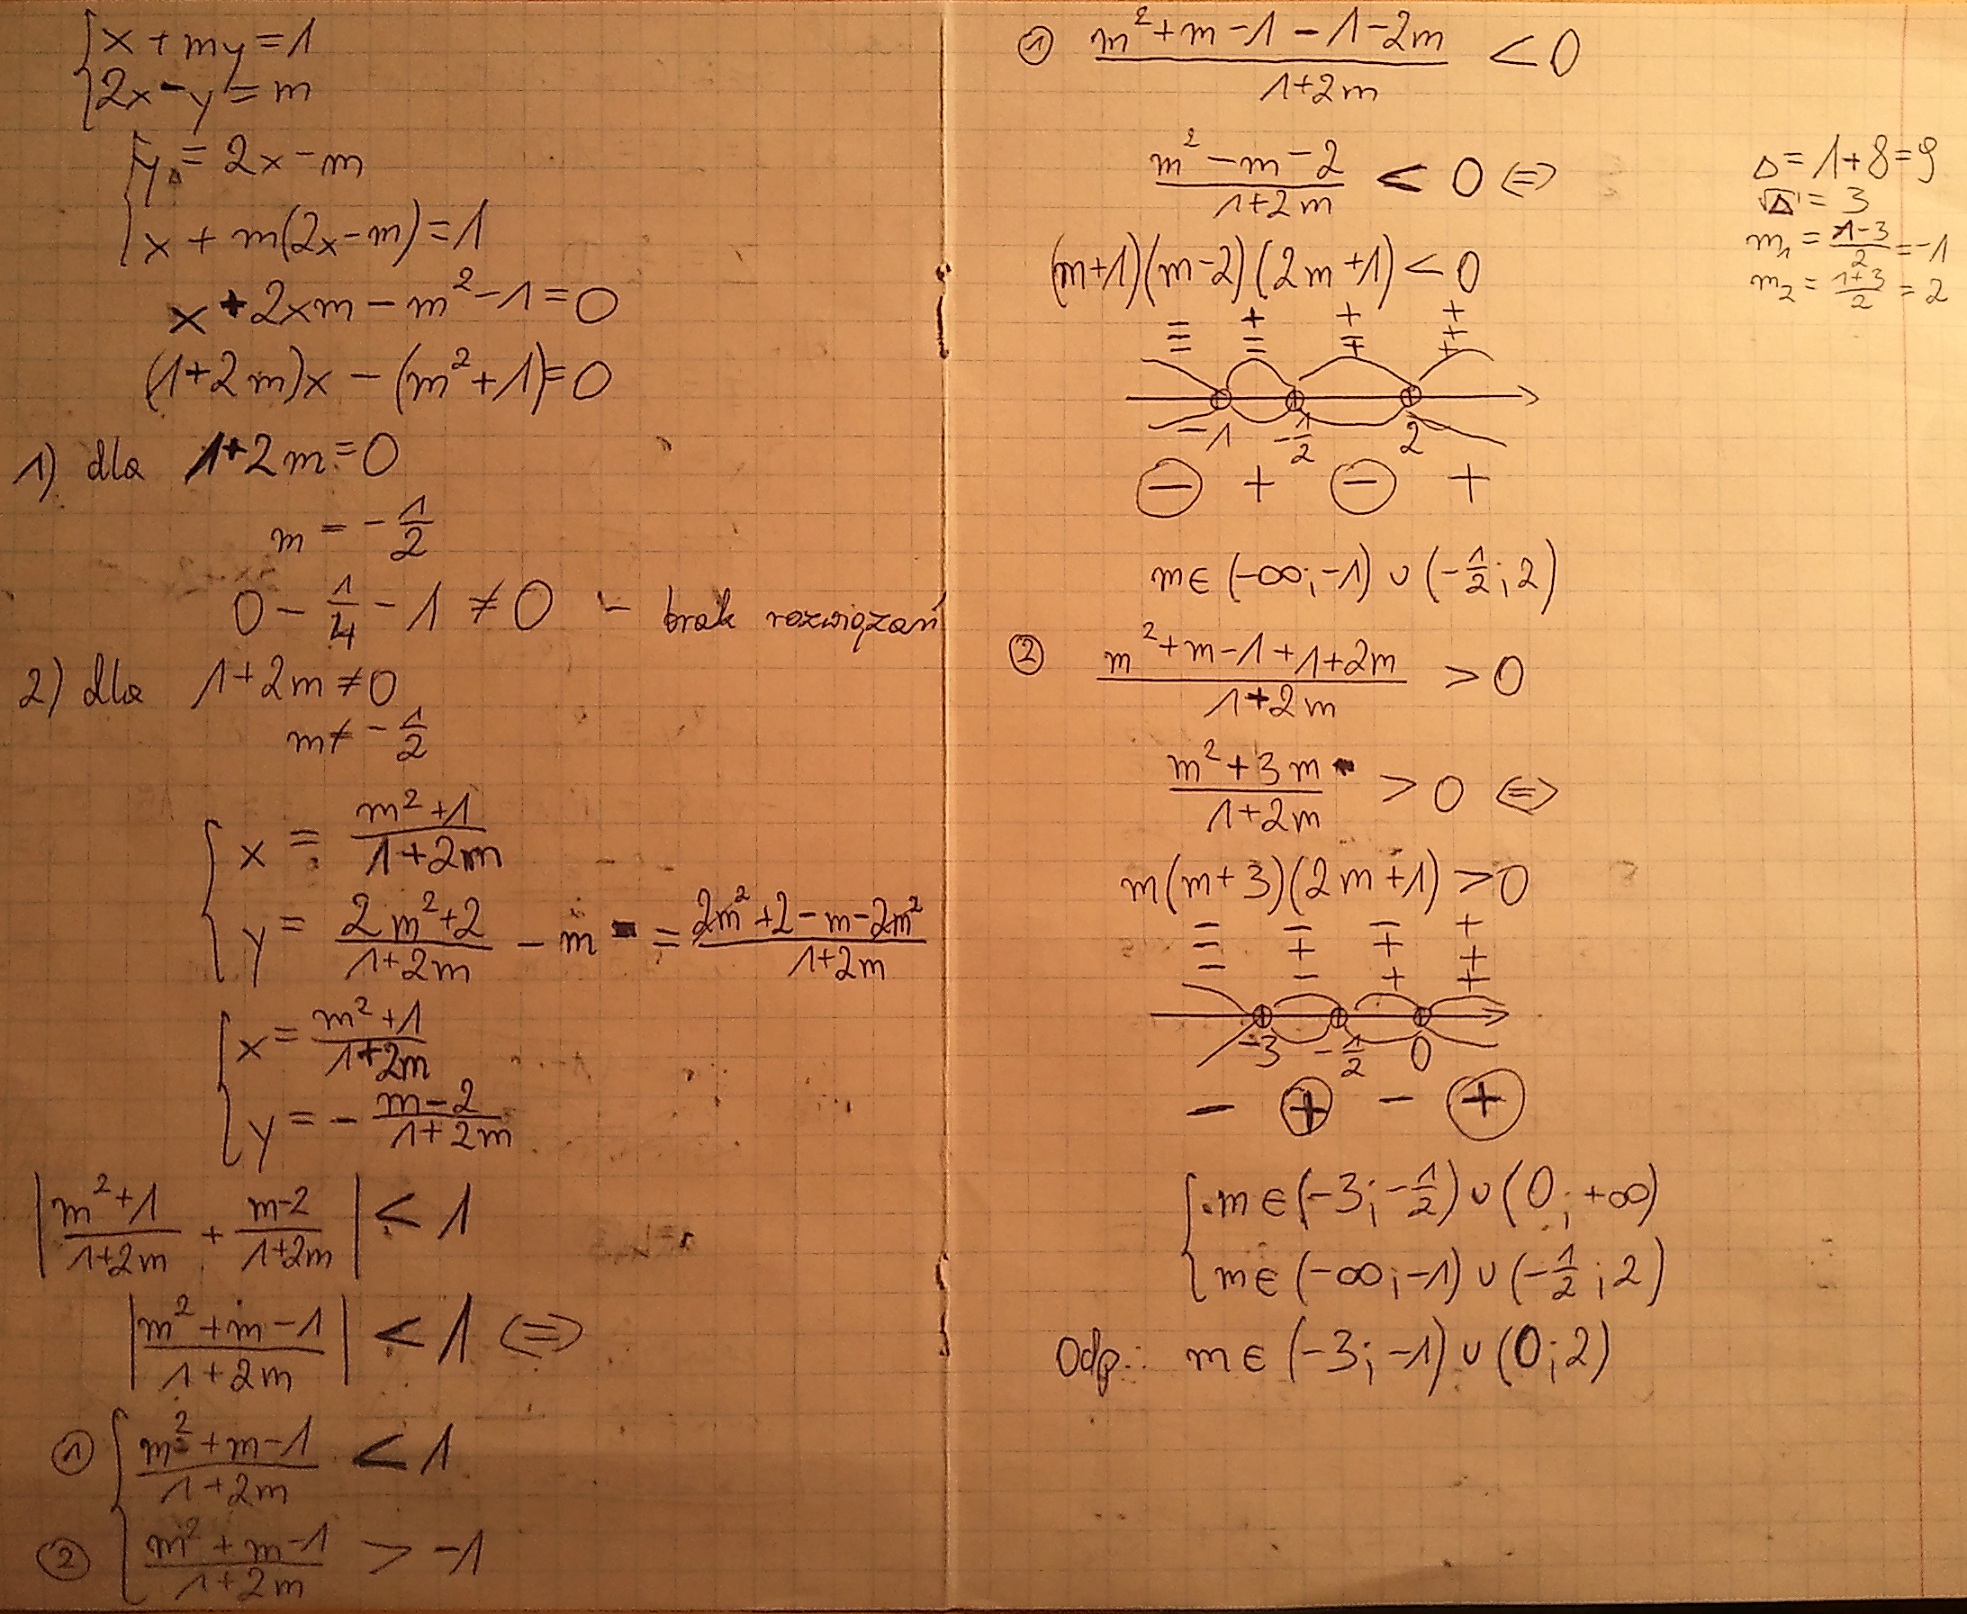 x + my = 1
2x - y = m
y = 2x - m
x + m(2x - m) = 1
x + 2xm - m² - 1 = 0
(1 + 2m)x - (m² + 1) = 0
1) dla 1 + 2m = 0
m = -1/2
0 - 1/4 - 1 ≠ 0 - brak rozwiązań
2) dla 1 + 2m ≠ 0
m ≠ -1/2
x = (m² + 1)/(1 + 2m)
y = (2m² + 2)/(1 + 2m) - m = (2m² + 2 - m - 2m²)/(1 + 2m)
x = (m² + 1)/(1 + 2m)
y = - (m - 2)/(1 + 2m)
|(m² + 1)/(1 + 2m) + (m - 2)/(1 + 2m)| < 1
|(m² + m - 1)/(1 + 2m)| < 1 ⇔
① (m² + m - 1)/(1 + 2m) < 1
② (m² + m - 1)/(1 + 2m) > -1
① (m² + m - 1 - 1 - 2m)/(1 + 2m) < 0
(m² - m - 2)/(1 + 2m) < 0 ⇔
Δ = 1 + 8 = 9
√Δ = 3
m₁ = (1 - 3)/2 = -1
m₂ = (1 + 3)/2 = 2
(m + 1)(m - 2)(2m + 1) < 0
- + + +
- - - +
- - + +
-1 -1/2 2
- + - +
m ∈ (-∞; -1) ∪ (-1/2; 2)
② (m² + m - 1 + 1 + 2m)/(1 + 2m) > 0
(m² + 3m)/(1 + 2m) > 0 ⇔
m(m + 3)(2m + 1) > 0
- - - +
- + + +
- - + +
-3 -1/2 0
- + - +
m ∈ (-3; -1/2) ∪ (0; +∞)
m ∈ (-∞; -1) ∪ (-1/2; 2)
Odp.: m ∈ (-3; -1) ∪ (0; 2)